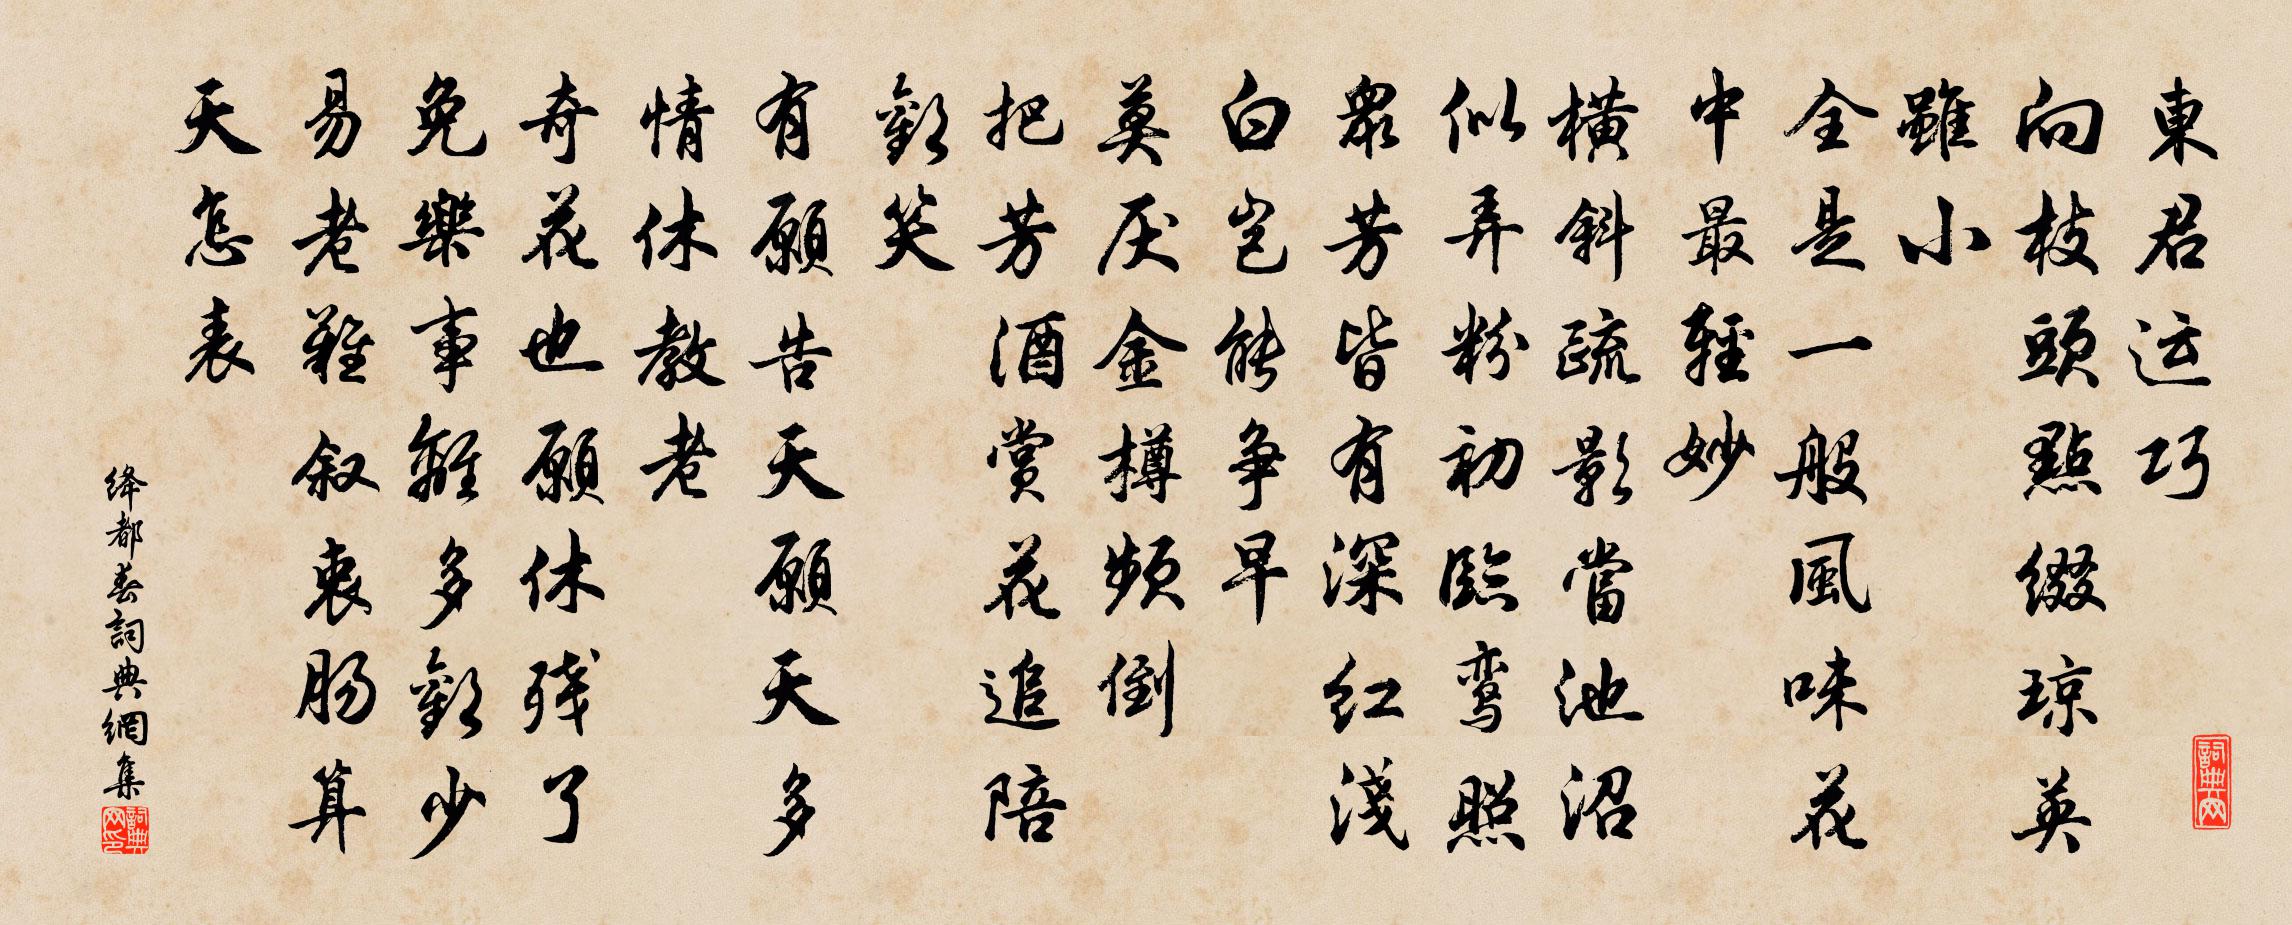 東君运巧
向枝頭點缀琼英
雖小
全是一般風味花
中最輕妙
橫斜疏影當池沼
似弄粉初臨鸾照
眾芳皆有深红淺
白岂能争早
莫厌金樽频倒
把芳酒赏花追陪
歡笑
有願告天天願天多
情休教老
奇花也願休残了
免樂事離多歡少
易老難叙衷肠算
天怎表
绛都春詞典網集
詞典网
詞典网印